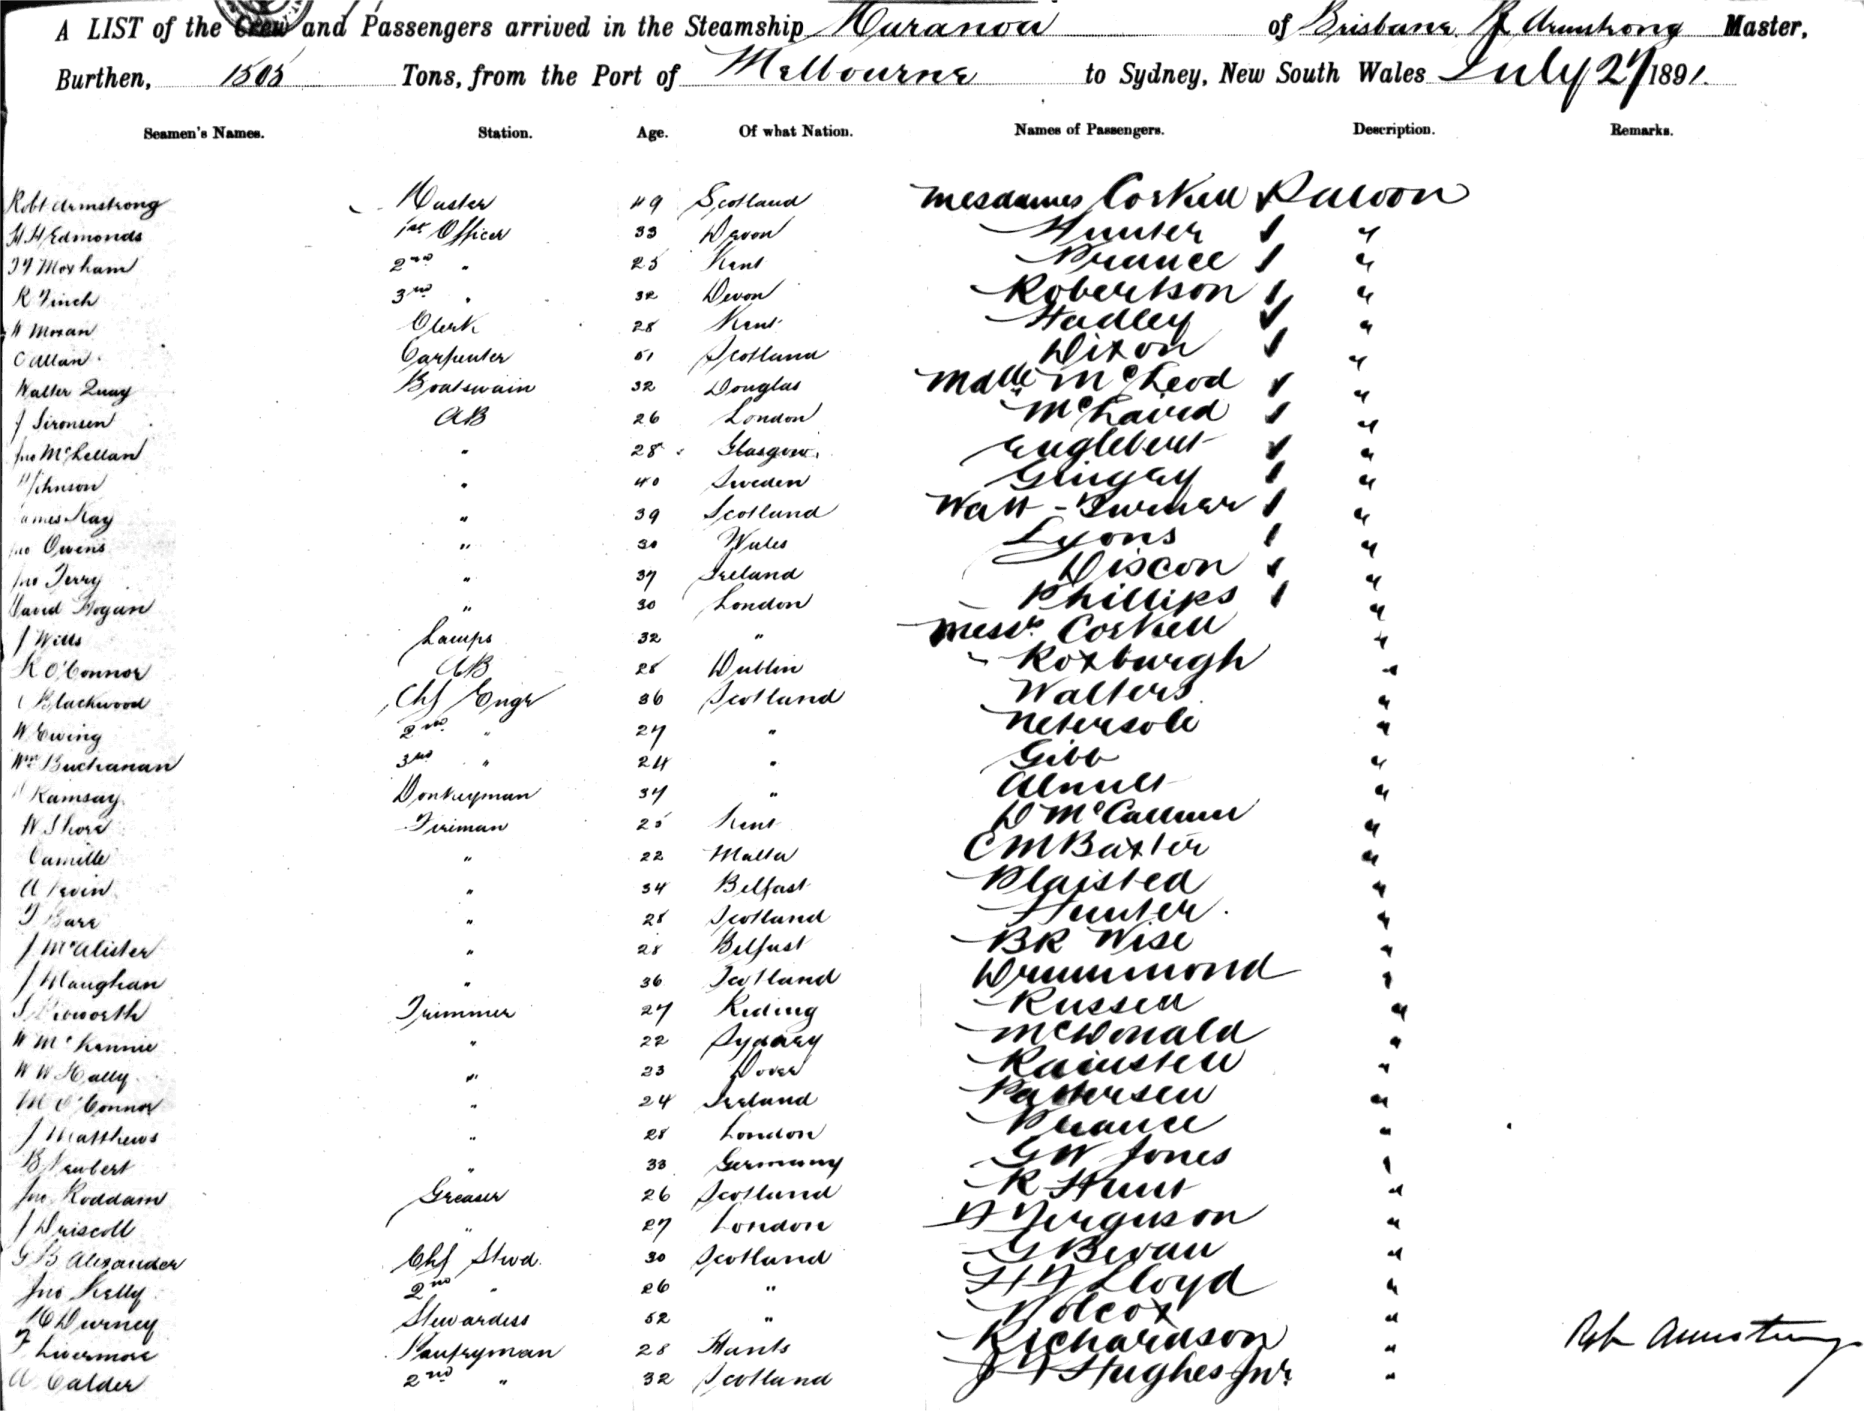 A LIST of the Crew and Passengers arrived in the Steamship Maranoa of Brisbane R Armstrong Master,
Burthen, 1505 Tons, from the Port of Melbourne to Sydney, New South Wales July 27 1891.
Seamen's Names. Station. Age. Of what Nation. Names of Passengers. Description. Remarks.
Robt Armstrong Master 49 Scotland Mesdames Corkell Saloon
H H Edmonds 1st Officer 33 Devon Hunter "
Moxham 2nd " 25 Kent Prance "
R Finch 3rd " 32 Devon Robertson "
W Moran Clerk 28 Kent Hadley "
C Allan Carpenter 51 Scotland Dixon "
Walter Quay Boatswain 32 Douglas Mdlle McLeod "
J Sironsen AB 26 London McLaird "
Jno McLellan " 28 Glasgow Englebert "
Johnson " 40 Sweden Gingey "
James Kay " 39 Scotland Watt - Turner "
Jno Owens " 30 Wales Lyons "
Jno Terry " 37 Ireland Discon "
David Hogan " 30 London Phillips "
J Wills Lamps 32 " Messrs Corkell "
R O'Connor AB 28 Dublin Roxburgh "
Blackwood Chf Engr 36 Scotland Walters "
W Ewing 2nd " 27 " Netersole "
Wm Buchanan 3rd " 24 " Gibb "
Ramsay Donkeyman 37 " "
W Shore Fireman 25 Kent D McCallum "
Camille " 22 Malta C M Baxter "
A Irvin " 34 Belfast Plaisted "
T Barr " 28 Scotland Hunter "
J McAlister " 28 Belfast B R Wise "
J Maughan " 36 Scotland Drummond "
Trimmer 27 Riding Russell "
W McKennie " 22 Sydney McDonald "
W W Hally " 23 Dover "
M O'Connor " 24 Ireland Pattersen "
J Matthews " 28 London Prance "
B Neubert " 33 Germany G W Jones "
Jno Roddam Greaser 26 Scotland R Hunt "
J Driscoll " 27 London Ferguson "
G B Alexander Chf Stwd. 30 Scotland G Bevan "
Jno Kelly 2nd " 26 " H F Lloyd "
Durney Stewardess 52 " Wolcox "
F Livermore Pantryman 28 Hants Richardson "
A Calder 2nd " 32 Scotland J F Hughes Jnr "
Robt Armstrong